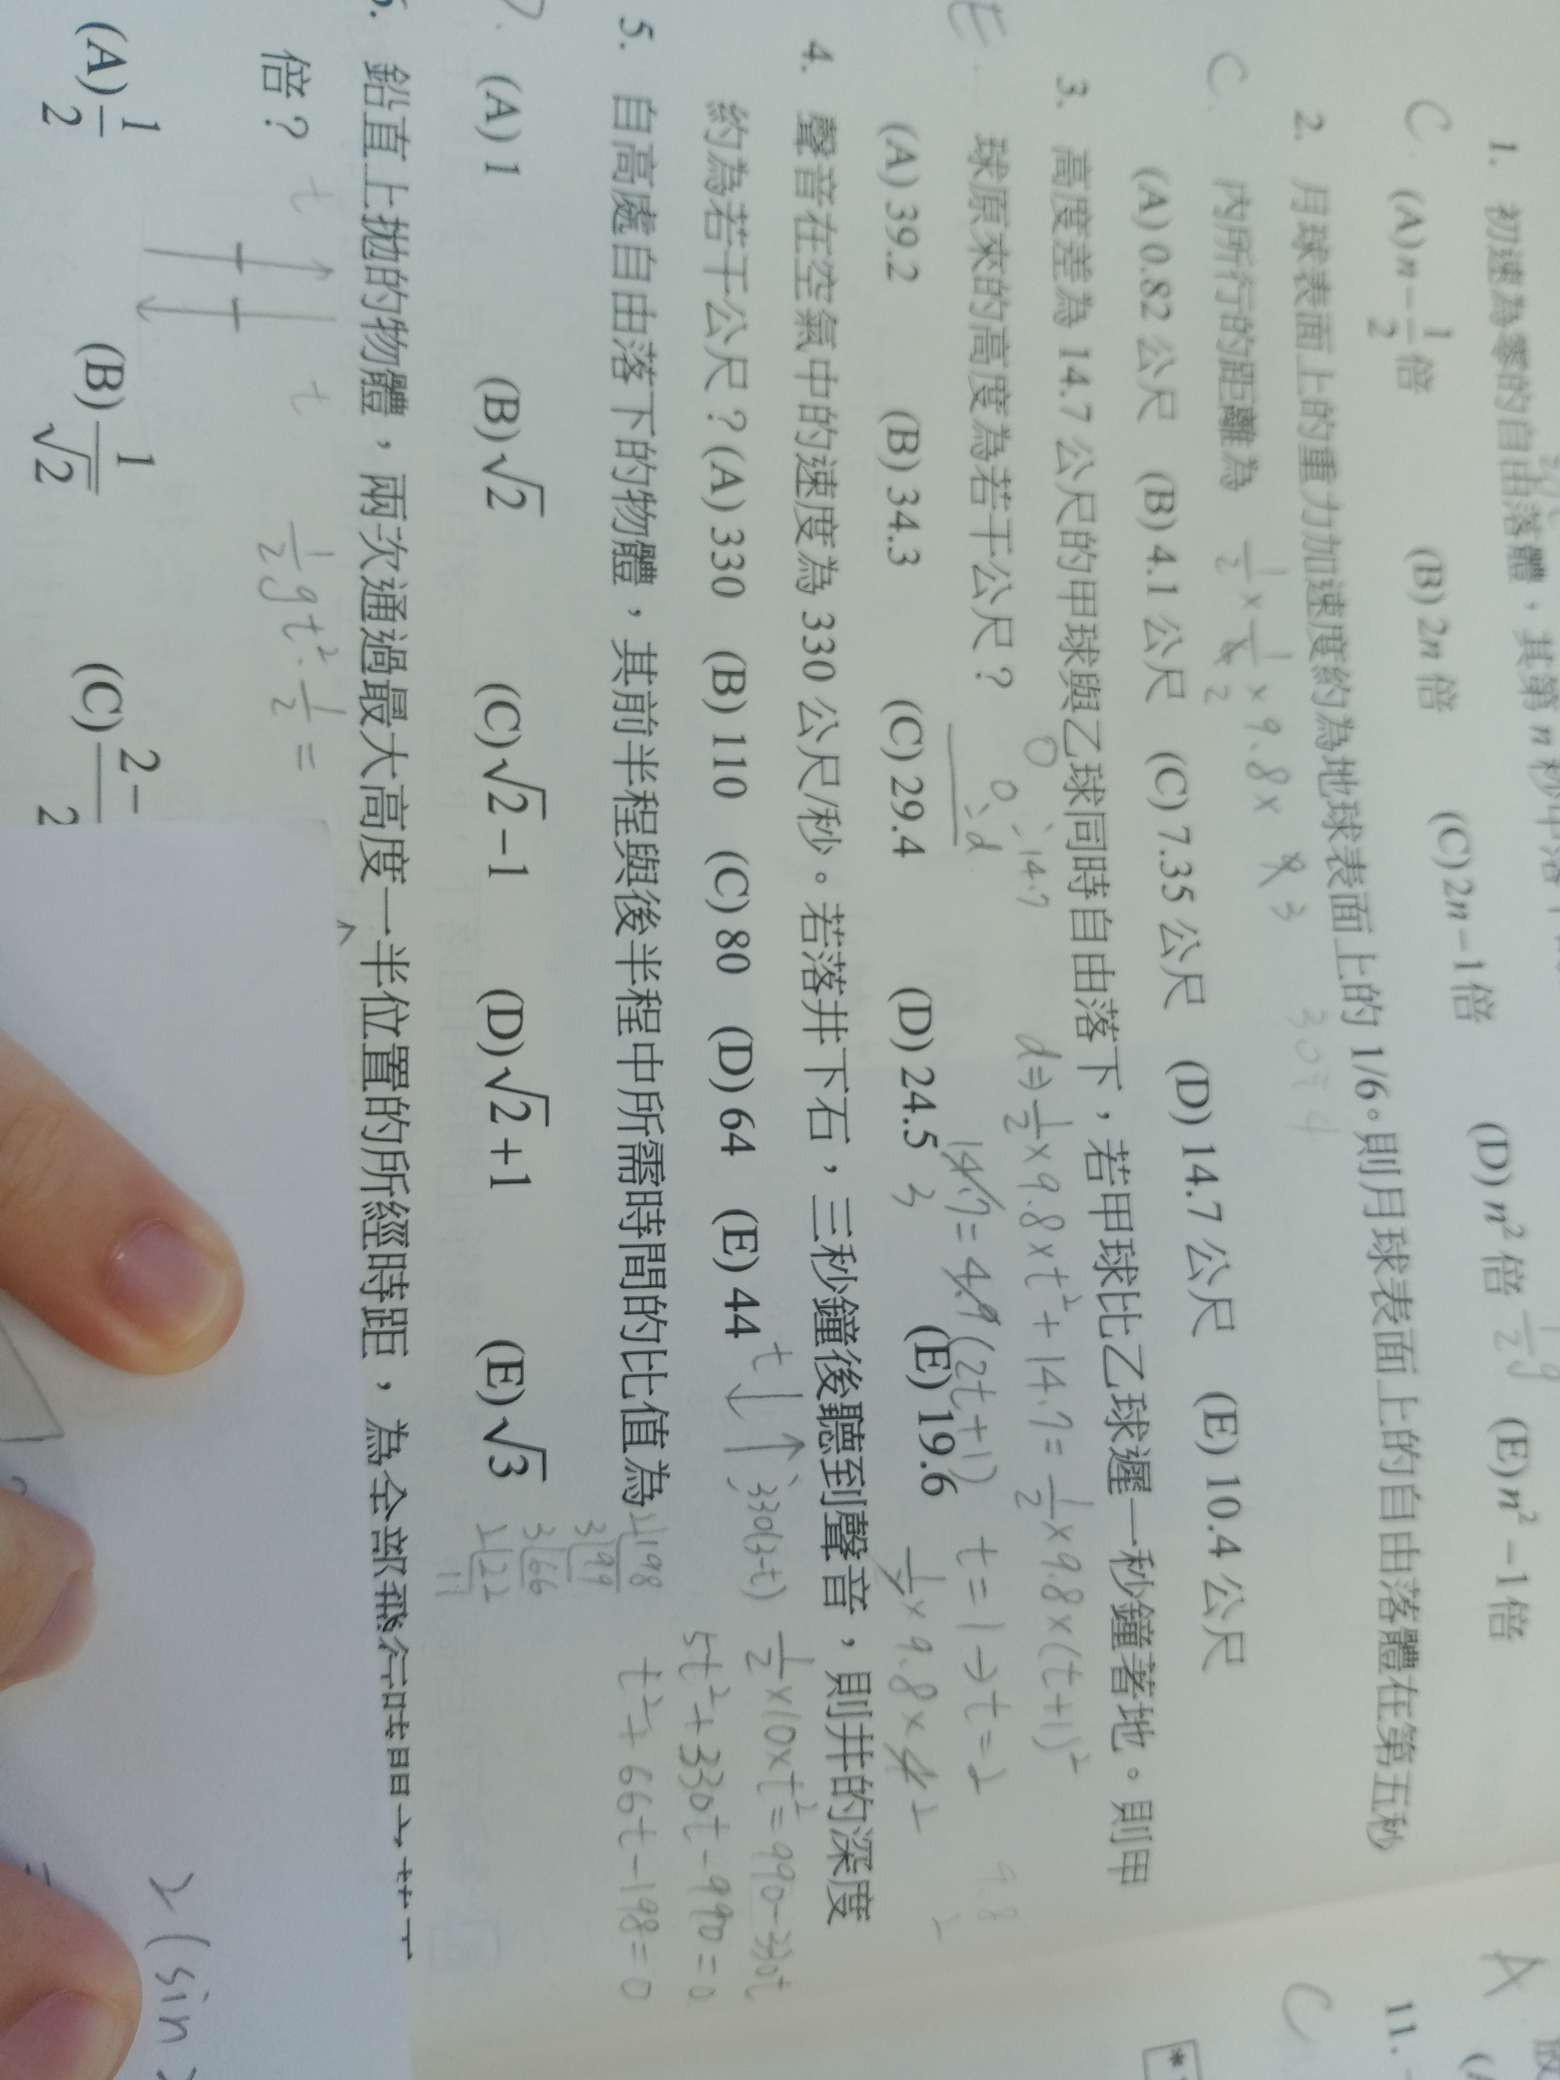 1. 初速為零的自由落體，其第 n 秒
C. (A) n－1/2 倍 (B) 2n 倍 (C) 2n－1倍 (D) n² 倍 (E) n²－1倍
2. 月球表面上的重力加速度約為地球表面上的 1/6。則月球表面上的自由落體在第五秒
C. 內所行的距離為
(A) 0.82 公尺 (B) 4.1 公尺 (C) 7.35 公尺 (D) 14.7 公尺 (E) 10.4 公尺
3. 高度差為 14.7 公尺的甲球與乙球同時自由落下，若甲球比乙球遲一秒鐘著地。則甲
E. 球原來的高度為若干公尺？
d⇒1/2×9.8×t²+14.7=1/2×9.8×(t+1)²
14.7=4.9(2t+1) t=1→t=2
(A) 39.2 (B) 34.3 (C) 29.4 (D) 24.5 (E) 19.6
4. 聲音在空氣中的速度為 330 公尺/秒。若落井下石，三秒鐘後聽到聲音，則井的深度
約為若干公尺？(A) 330 (B) 110 (C) 80 (D) 64 (E) 44
t 330(3-t) 1/2×10×t²=990-330t
5t²+330t-990=0
t²+66t-198=0
5. 自高處自由落下的物體，其前半程與後半程中所需時間的比值為
(A) 1 (B) √2 (C) √2－1 (D) √2＋1 (E) √3
鉛直上拋的物體，兩次通過最大高度一半位置的所經時距，為全部飛行時間之
倍？
t t 1/2gt²·1/2=
(A) 1/2 (B) 1/√2 (C)
2(sin
11.
A
C